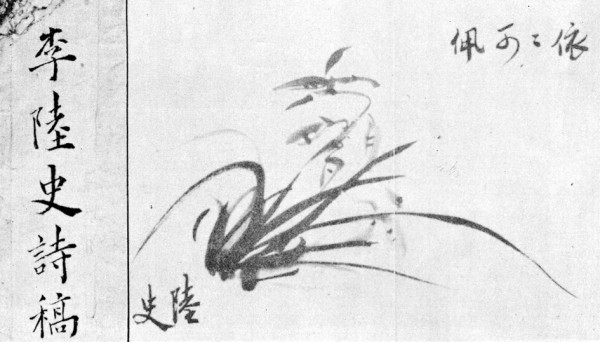 李陸史詩稿
依〻可佩
陸史